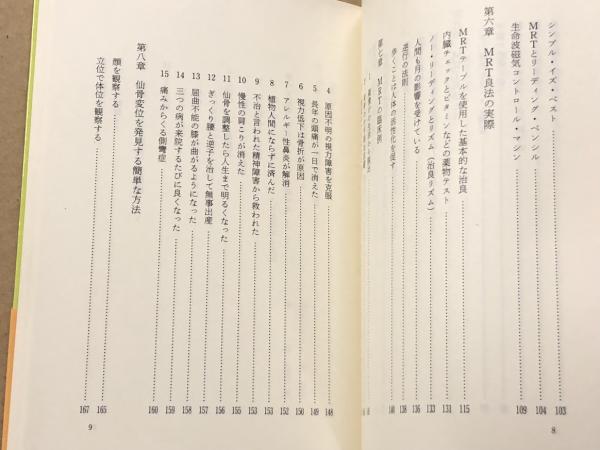 シンプル・イズ・ベスト……103
MRTとリーディング・ペンシル……104
生命波磁気コントロール・マシン……109
第六章　MRT良法の実際
MRTテーブルを使用した基本的な治良……115
内臓チェックとビタミンなどの薬物テスト……131
ノー・リーディングとリズム（治良リズム）……133
人間も月の影響を受けている……136
逆行の法則……138
歩くことは人体の活性化を促す……140
第七章　MRTの臨床例
8
4　原因不明の視力障害を克服……148
5　長年の頭痛が一日で消えた……149
6　視力低下は骨折が原因……150
7　アレルギー性鼻炎が解消……152
8　植物人間にならずに済んだ……153
9　不治と言われた精神障害から救われた……153
10　慢性の肩こりが消えた……155
11　仙骨を調整したら人生まで明るくなった……156
12　ぎっくり腰と逆子を治して無事出産……157
13　屈曲不能の膝が曲がるようになった……158
14　三つの病が来院するたびに良くなった……159
15　痛みからくる側彎症……160
第八章　仙骨変位を発見する簡単な方法
顔を観察する……165
立位で体位を観察する……167
9